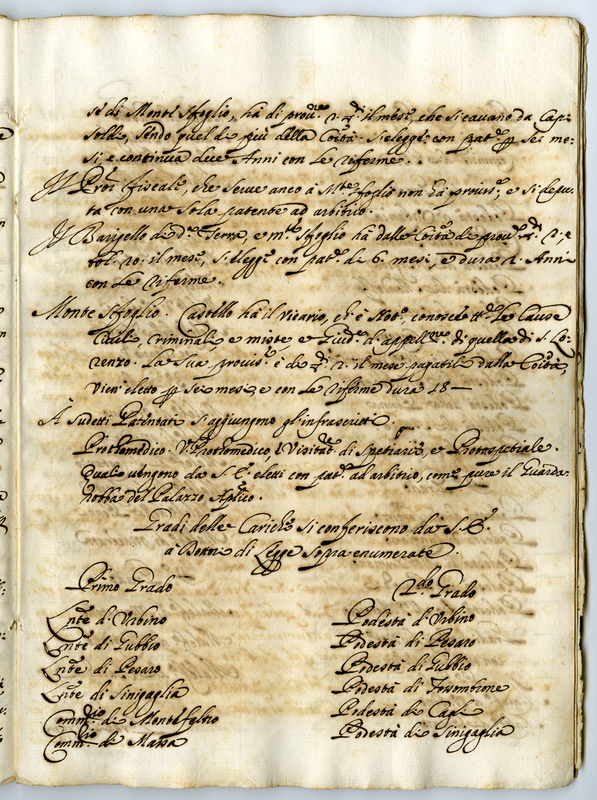 sè di Monte Sfoglio, hà di prou.ne 2. il mese, che si cauano da Capi-
solde, sendo quel de più della Co͠ità. si elegge con pat.e per sei me-
si, e continua dece Anni con le riferme.
Il Pro.r fiscale, che serue anco à M.te Sfoglio non hà prouis.e, e si depu-
ta con una sola patente ad arbitrio.
Il Barigello di d.a Terra, e m.te Sfoglio hà dalle Co͠ità di prou.e 2. e
bol. 20. il mese, si elegge con pat.e di 6. mesi, e dura 2. Anni
con le riferme.
Monte Sfoglio. Castello hà il Vicario, ch'è Not.o, conosce le Cause
Ciuili, criminali, e miste, e Giud.e d'appell.ne di quelle di S. Lo-
renzo. La sua prouis.e è di 2. il mese pagatili dalla Co͠ità,
vien eletto per sei mesi, e con le riferme dura 18 —
A sudetti Patentati s'aggiungono gl'infrascritti.
Prothomedico. V. Prothomedico, e Visitat.re di Spetiarie, e Protospetiale.
Quali uengono da S. E. eletti con pat.e ad arbitrio, come pure il Guarda-
robba del Palazzo Ap.lico.
Gradi delle Cariche si conferiscono da S. E.
à Dottori di Legge sopra enumerate.
Primo Grado
L.nte d'Vrbino
L.nte di Gubbio
L.nte di Pesaro
L.nte di Sinigaglia
Comm.rio di Montefeltro
Comm.rio di Massa
2.do Grado
Podestà d'Vrbino
Podestà di Pesaro
Podestà di Gubbio
Podestà di Fossombrone
Podestà di Cagli
Podestà di Sinigaglia